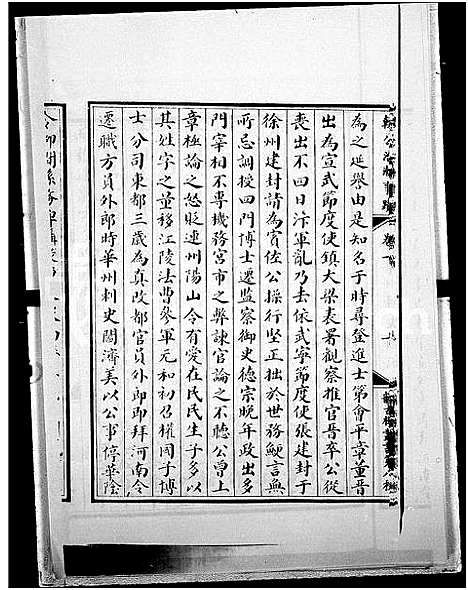 為之延譽由是知名于時尋登進士第會平章董晉
出為宣武節度使鎮大梁表署觀察推官晉卒公從
喪出不四日汴軍亂乃去依武寧節度使張建封于
徐州建封請為賓佐公操行堅正拙於世務鯁言無
所忌調授四門博士遷監察御史德宗晚年政出多
門宰相不專機務宮市之弊諫官論之不聽公嘗上
章極論之怒貶連州陽山令有愛在民民生子多以
其姓字之量移江陵法曹參軍元和初召權國子博
士分司東都三歲為真改都官員外郎即拜河南令
遷職方員外郎時華州刺史閻濟美以公事停華陰